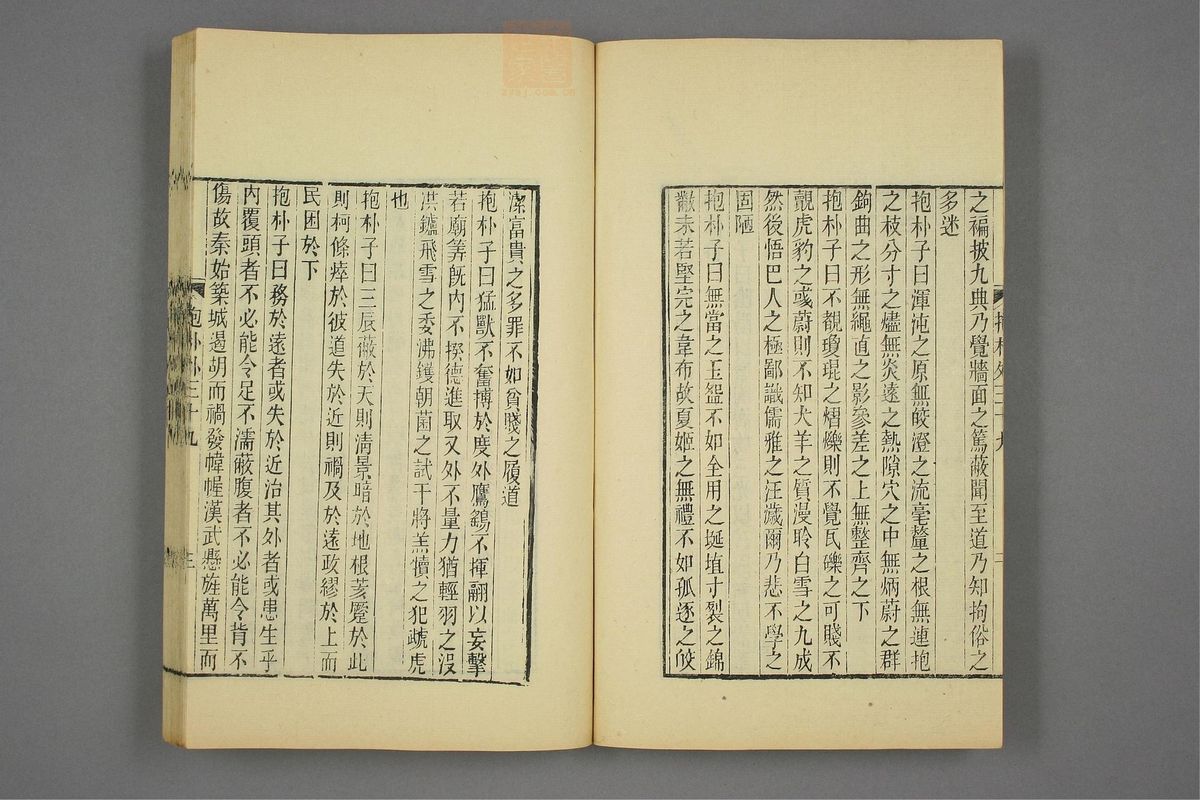 之褊披九典乃覺牆面之篤蔽聞至道乃知拘俗之
多迷
抱朴子曰渾沌之原無皎澄之流毫釐之根無連抱
之枝分寸之燼無炎遠之熱隙穴之中無炳蔚之群
鉤曲之形無繩直之影參差之上無整齊之下
抱朴子曰不覩瓊琨之熠爍則不覺瓦礫之可賤不
覿虎豹之彧蔚則不知犬羊之質漫聆白雪之九成
然後悟巴人之極鄙識儒雅之汪濊爾乃悲不學之
固陋
抱朴子曰無當之玉盌不如全用之埏埴寸裂之錦
黻未若堅完之韋布故夏姬之無禮不如孤逐之皎
潔富貴之多罪不如貧賤之履道
抱朴子曰猛獸不奮搏於度外鷹鷂不揮翮以妄擊
若廟筭既內不揆德進取又外不量力猶輕羽之沒
洪鑪飛雪之委沸鑊朝菌之試干將羔犢之犯虓虎
也
抱朴子曰三辰蔽於天則清景暗於地根荄蹷於此
則柯條瘁於彼道失於近則禍及於遠政繆於上而
民困於下
抱朴子曰務於遠者或失於近治其外者或患生乎
內覆頭者不必能令足不濡蔽腹者不必能令背不
傷故秦始築城遏胡而禍發幃幄漢武懸旌萬里而
抱朴外三十九